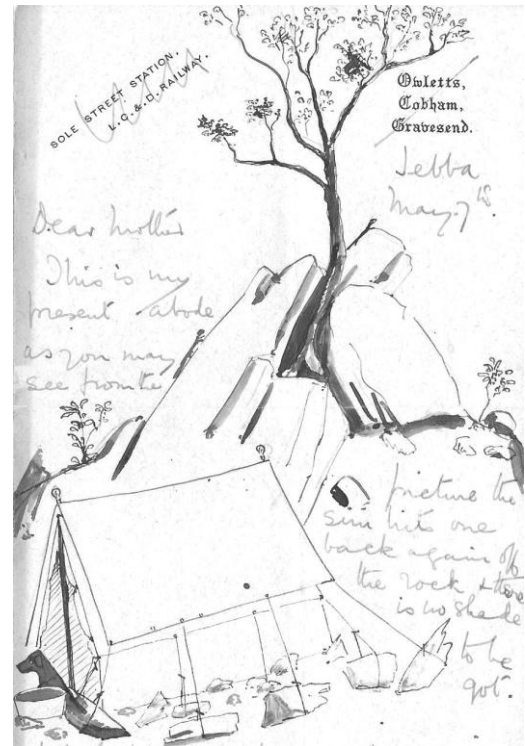 SOLE STREET STATION,
L.C. & D. RAILWAY.
Owletts,
Cobham,
Gravesend.
Jebba
May 7th.
Dear Mother
This is my
present abode
as you may
see from the
picture the
sun hits one
back again off
the rock & there
is no shade
to be
got.